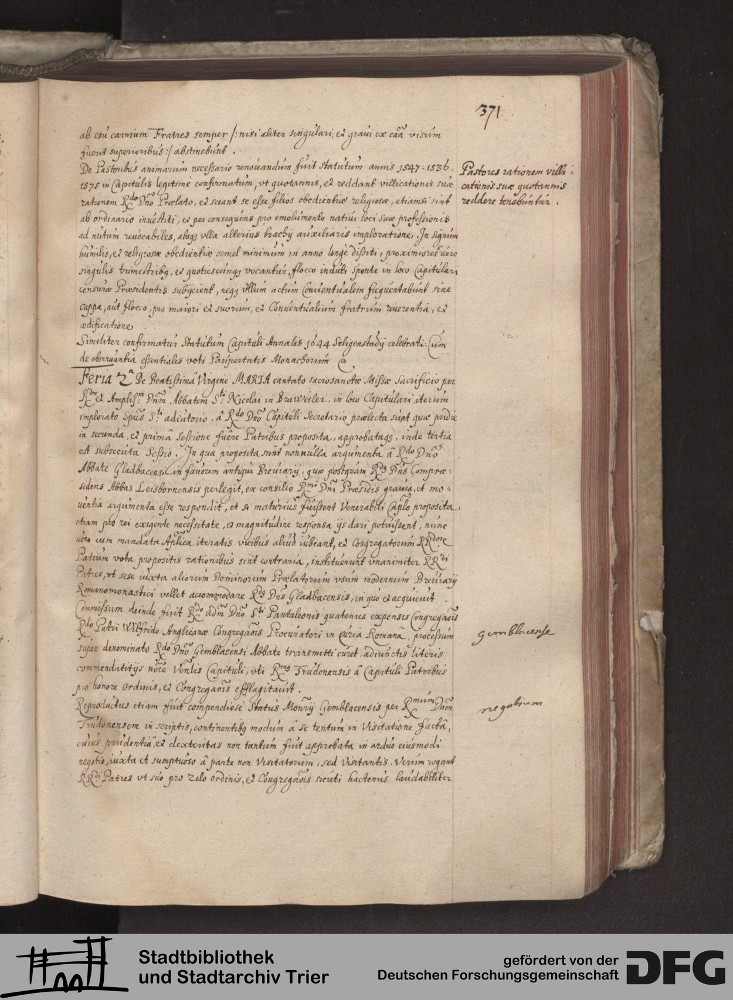 371
ab esu carnium Fratres semper /: nisi aliter singulari, et graui ex caā visum
fuerit superioribus :/ abstinebunt.
De Pastoribus animarum necessario renouandum fuit statutum annis 1547. 1536.
1575 in Capitulis legitime confirmatum, vt quotannis, et reddant villicationis suæ
rationem Rdo Dno Prælato, et sciant se esse filios obedientiæ religiosæ, etiamsi sint
ab ordinario inuestiti, et per consequens pro emolumento natiui loci suæ professionis
ad nutum reuocabiles, absq vlla alterius brachij auxiliaris imploratione. In signum
humilis, et religiosæ obedientiæ semel minimum in anno longè dissiti, proximiores vero
singulis trimestribq, et quotiescunq vocantur, flocco induti sponte in loco Capitulari
censuræ Præsidentis subijcient, neqq vllum actum Conuentualem frequentabunt sine
cappa, aut flocco, pro maiori et suorum, et Conuentualium fratrum reuerentia, et
ædificatione.
Similiter confirmatur Statutum Capituli Annalis 1644 Seligenstadij celebrati. Cum
de obseruantia essentialis voti Paupertatis Monachorum
Feria 2ā De Beatissima Virgine MARIA cantato sacrosanctæ Missæ Sacrificio per
Rm et Amplissm Dnm Abbatem Sti Nicolai in Brawiler. in loco Capitulari iterum
implorato Spus Sti adiutorio. à Rdo Dno Capituli Secretario prælecta sunt quæ pridie
in secunda, et prima Sessione fuere Patribus proposita, approbataqq, inde tertia
est subsecuta Sessio. In qua proposita sunt nonnulla argumenta à Rdo Dno
Abbate Gladbacensi in fauorem antiqui Breuiarij. quæ postquam Rds Dnus Compræ-
sidens Abbas Leisbornensis perlegit, ex consilio Rmi Dni Præsidis grauia, et mo-
uentia argumenta esse respondit, et si maturius fuissent Venerabili Caplo proposita,
etiam pro rei exigente necessitate, et magnitudine responsa ijs dari potuissent, nunc
vero cum mandata Aplica iteratis vicibus aliud iubeant, et Congregatorum RRdorum
Patrum vota propositis rationibus sint contraria, instituerunt vnanimiter RRdi
Patres, vt sese iuxta aliorum Dominorum Prælatorum vsum modernum Breuiarij
Romanomonastici vellet accommodare Rds Dnus Gladbacensis, in quo et acquieuit.
Commissum deinde fuit Rdo adm Dno Sti Pantaleonis quatenus expensis Congregaōis
Rdo Patri Wilfrido Anglicanæ Congregaōis Procuratori in curia Romana, processum
super denominato Rdo Dno Gemblacensi Abbate transmitti curet, adiunctis literis
commendatitijs nōrē Venlis Capituli, vti Rmus Trudonensis à Capituli Patribus
pro honore Ordinis, et Congregaōis efflagitauit.
Reproductus etiam fuit compendiose Status Monrij Gemblacensis per Rmum Dnm
Trudonensem in scriptis, continentibq modum à se tentum in Visitatione facta,
cuius prudentia, et dexteritas non tantum fuit approbata in arduo eiusmodi
negotio, iuxta et sumptuoso à parte non Visitatorum, sed Visitantis. Verum rogant
RRdi Patres vt suo pro zelo ordinis, et Congregaōis sicuti hactenus laudabiliter
Pastores rationem villi-
cationis suæ quotannis
reddere tenebuntur.
gemblacense
negotium
Stadtbibliothek
und Stadtarchiv Trier
gefördert von der
Deutschen Forschungsgemeinschaft
DFG